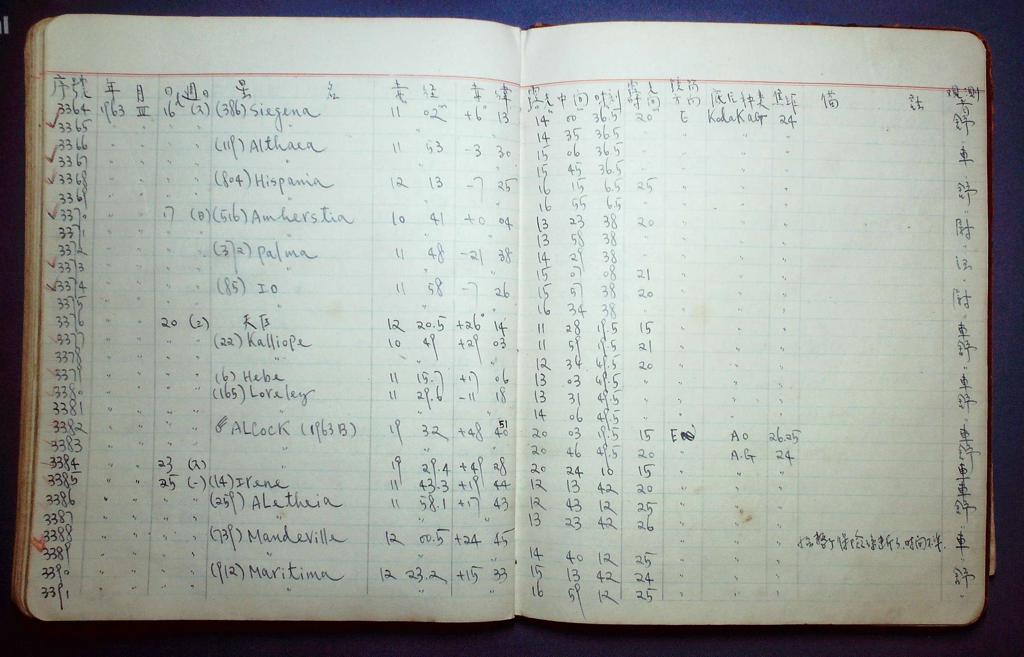 al
序號 年 月 日 週日 星 名 赤 經 赤 緯 露光中间时刻 露光时间 鏡筒方向 底片种类 焦距 備 註 觀測者
3364 1963 III 16 (386) Siegena 11 02 +6° 13 14 00 36.5 20 E Kodak aG 24 舒
3365 14 35 36.5
3366 (119) Althaea 11 53 -3 30 15 06 36.5 車
3367 15 45 36.5
3368 (804) Hispania 12 13 -7 25 16 15 6.5 25 舒
3369 16 55 6.5
3370 17 (516) Amherstia 10 41 +0 04 13 23 38 20
3371 13 58 38
3372 (372) palma 11 48 -21 38 14 29 38
3373 15 07 08 21
3374 (85) IO 11 58 -7 26 15 57 38 20
3375 16 34 38
3376 20 (三) 天区 12 20.5 +26° 14 11 28 19.5 15 車
3377 (22) Kalliope 10 49 +29 03 11 59 19.5 21 舒
3378 12 34 49.5 20
3379 (6) Hebe 11 15.7 +17 06 13 03 49.5 車
3380 (165) Loreley 11 29.6 -11 18 13 31 49.5 舒
3381 14 06 49.5
3382 ALCOCK (1963B) 19 32 +48 51 20 03 19.5 15 E AO 26.25 車
3383 20 46 49.5 20 A.G 24 舒
3384 23 (六) 19 29.4 +49 28 20 24 10 15 車
3385 25 (一) (14) Irene 11 43.3 +19 44 12 13 42 20 車
3386 (259) Aletheia 11 58.1 +17 43 12 43 12 25 舒
3387 13 23 42 26
3388 (739) Mandeville 12 00.5 +24 45 車
3389 14 40 12 25
3390 (912) Maritima 12 23.2 +15 33 15 13 42 24 舒
3391 16 59 12 25